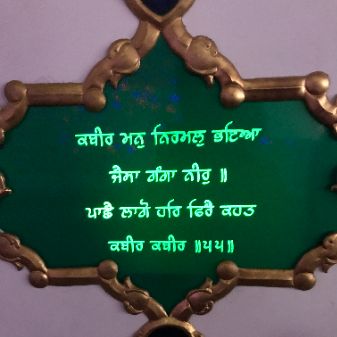 ਕਬੀਰ ਮਨੁ ਨਿਰਮਲੁ ਭਇਆ
ਜੈਸਾ ਗੰਗਾ ਨੀਰੁ ॥
ਪਾਛੈ ਲਾਗੋ ਹਰਿ ਫਿਰੈ ਕਹਤ
ਕਬੀਰ ਕਬੀਰ ॥੫੫॥